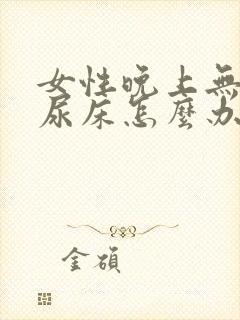 女性晚上無
尿床怎麼办
金碩